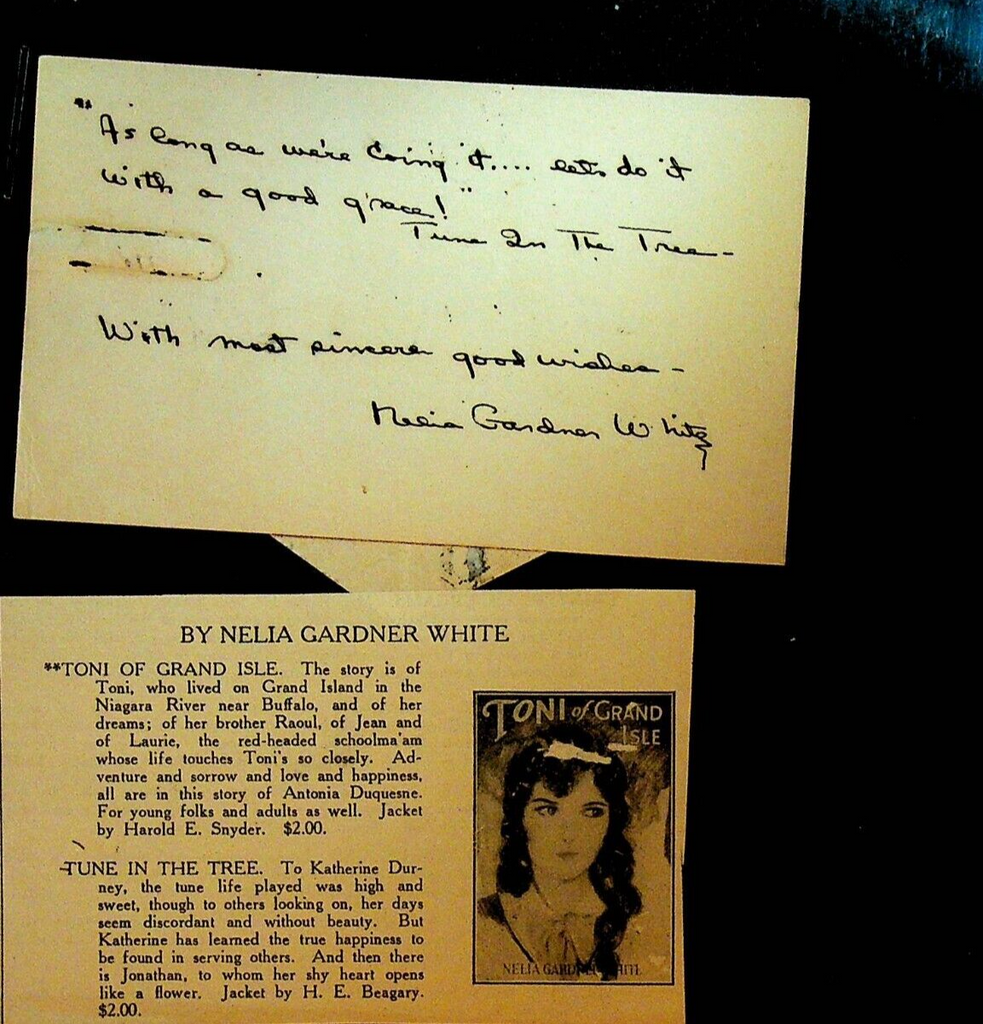 "As long as we're doing it.... let's do it
with a good grace!"
Tune In The Tree-
With most sincere good wishes-
Nelia Gardner White
BY NELIA GARDNER WHITE
**TONI OF GRAND ISLE. The story is of
Toni, who lived on Grand Island in the
Niagara River near Buffalo, and of her
dreams; of her brother Raoul, of Jean and
of Laurie, the red-headed schoolma'am
whose life touches Toni's so closely. Ad-
venture and sorrow and love and happiness,
all are in this story of Antonia Duquesne.
For young folks and adults as well. Jacket
by Harold E. Snyder. $2.00.
TUNE IN THE TREE. To Katherine Dur-
ney, the tune life played was high and
sweet, though to others looking on, her days
seem discordant and without beauty. But
Katherine has learned the true happiness to
be found in serving others. And then there
is Jonathan, to whom her shy heart opens
like a flower. Jacket by H. E. Beagary.
$2.00.
TONI of GRAND
ISLE
NELIA GARDNER WHITE